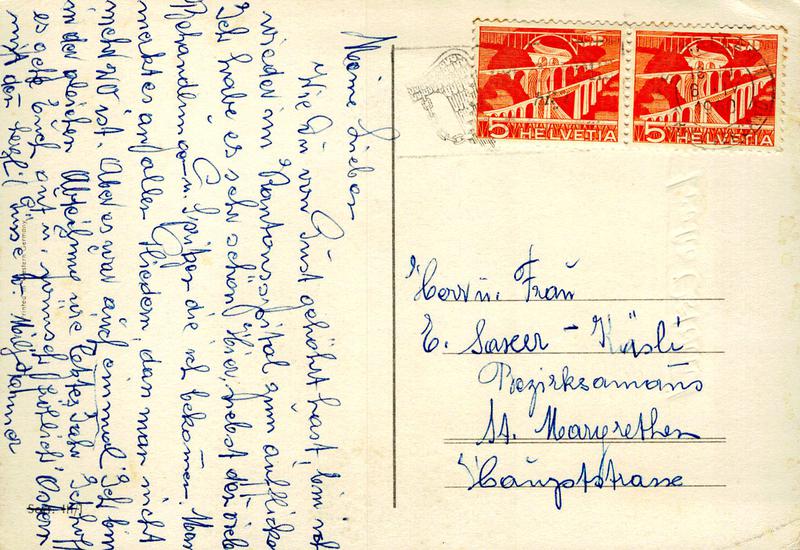 Meine Lieben
Wie Du von Gust gehört hast, bin ich
wieder im Kantonsspital zum aufflicken
Ich habe es sehr schön hier, nebst der viele
Behandlungen u. Spritzen die ich bekomme. Man
merkt es an allen Gliedern, das man nicht
mehr 20 ist. Aber es war auch einmal Ich bin
in der gleichen Abteilung wie letztes Jahr. Ich hoff
es geht Euch gut u. wünsch fröhlich Ostern
mit der
HELVETIA 5
HELVETIA 5
Herr u. Frau
E. Saxer - Käsli
Bezirksamanns
St. Margrethen
Hauptstrasse